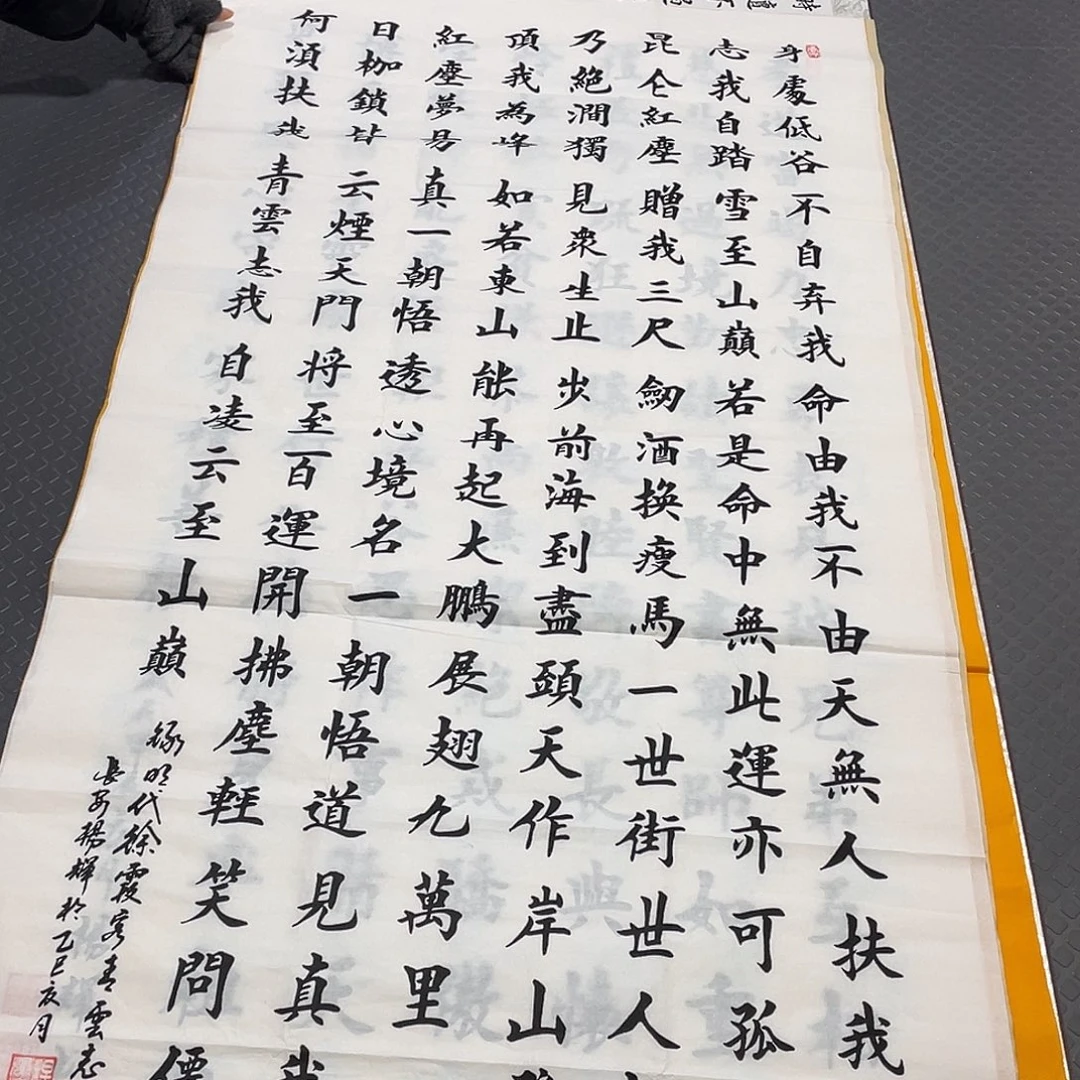 身處低谷不自弃我命由我不由天無人扶我
志我自踏雪至山巔若是命中無此運亦可孤
昆仑紅塵贈我三尺劒酒換瘦馬一世街世人
乃絕澗獨見衆生止步前海到盡頭天作岸山
頂我為峰如若東山能再起大鵬展翅九萬里
紅塵夢易真一朝悟透心境名一朝悟道見真我
日枷鎖皆云煙天門将至百運開拂塵輕笑問僊
何須扶我青雲志我自凌云至山巔
錄明代徐霞客青雲志
長安楊輝於乙巳亥月